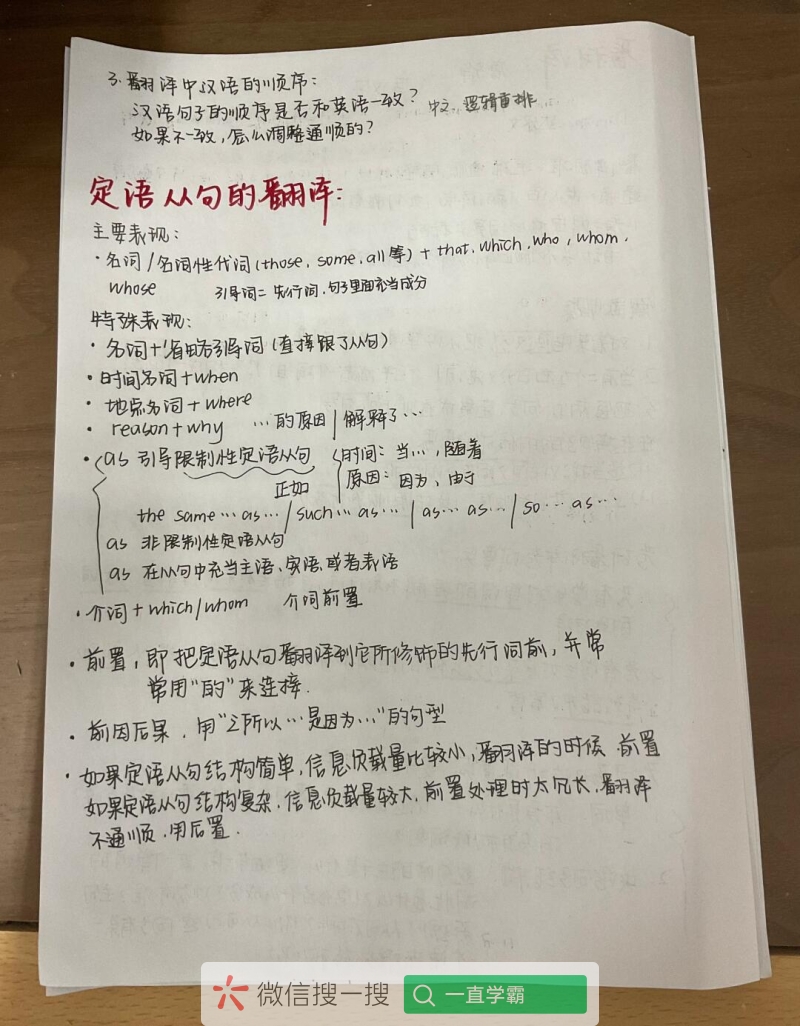 3. 翻译中汉语的顺序：
汉语句子的顺序是否和英语一致？ 中文，逻辑重排
如果不一致，怎么调整通顺的？
定语从句的翻译：
主要表现：
· 名词/名词性代词(those, some, all等) + that, which, who, whom,
whose 引导词=先行词，句子里面充当成分
特殊表现：
· 名词+省略引导词(直接跟了从句)
· 时间名词+when
· 地点名词+where
· reason+why …的原因/解释了…
· as 引导限制性定语从句 时间：当…，随着
正如 原因：因为、由于
the same…as…/such…as…/as…as…/so…as…
as 非限制性定语从句
as 在从句中充当主语、宾语、或者表语
· 介词+which/whom 介词前置
· 前置，即把定语从句翻译到它所修饰的先行词前，并常
常用"的"来连接.
· 前因后果，用"之所以…是因为…"的句型
· 如果定语从句结构简单，信息负载量比较小，翻译的时候，前置
如果定语从句结构复杂，信息负载量较大，前置处理时太冗长，翻译
不通顺，用后置.
微信搜一搜 一直学霸